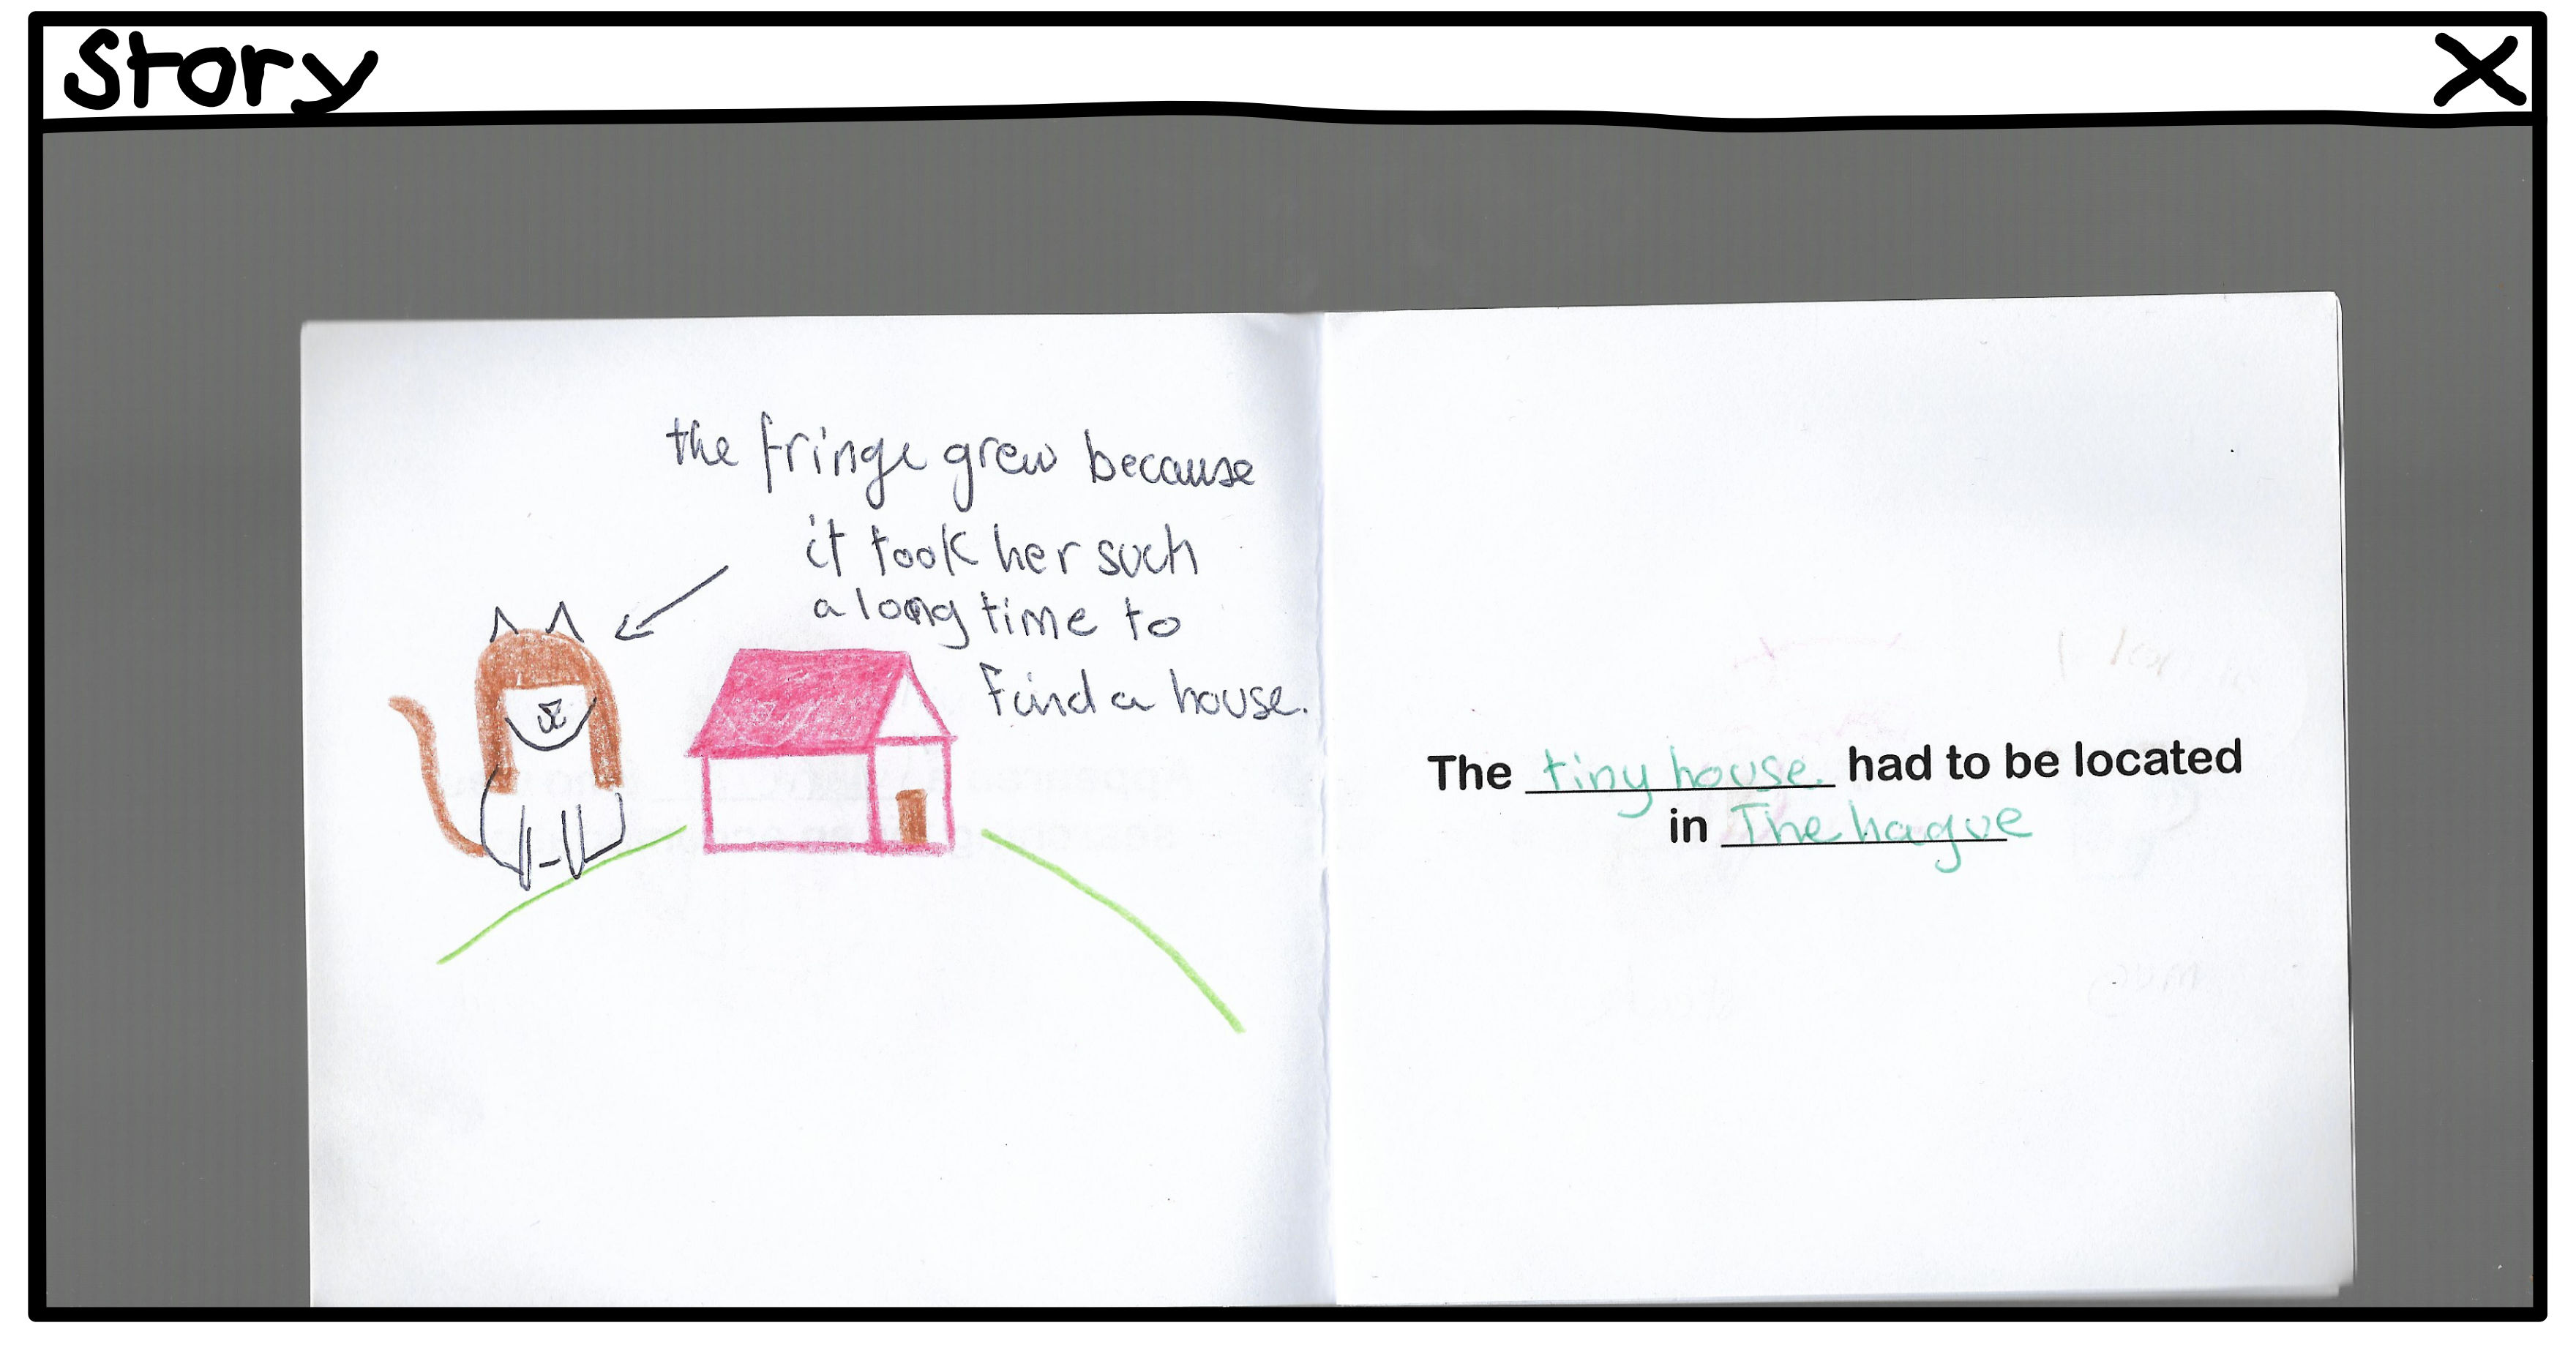 Story X
the fringe grew because
it took her such
a long time to
find a house.
The tiny house. had to be located
in The hague